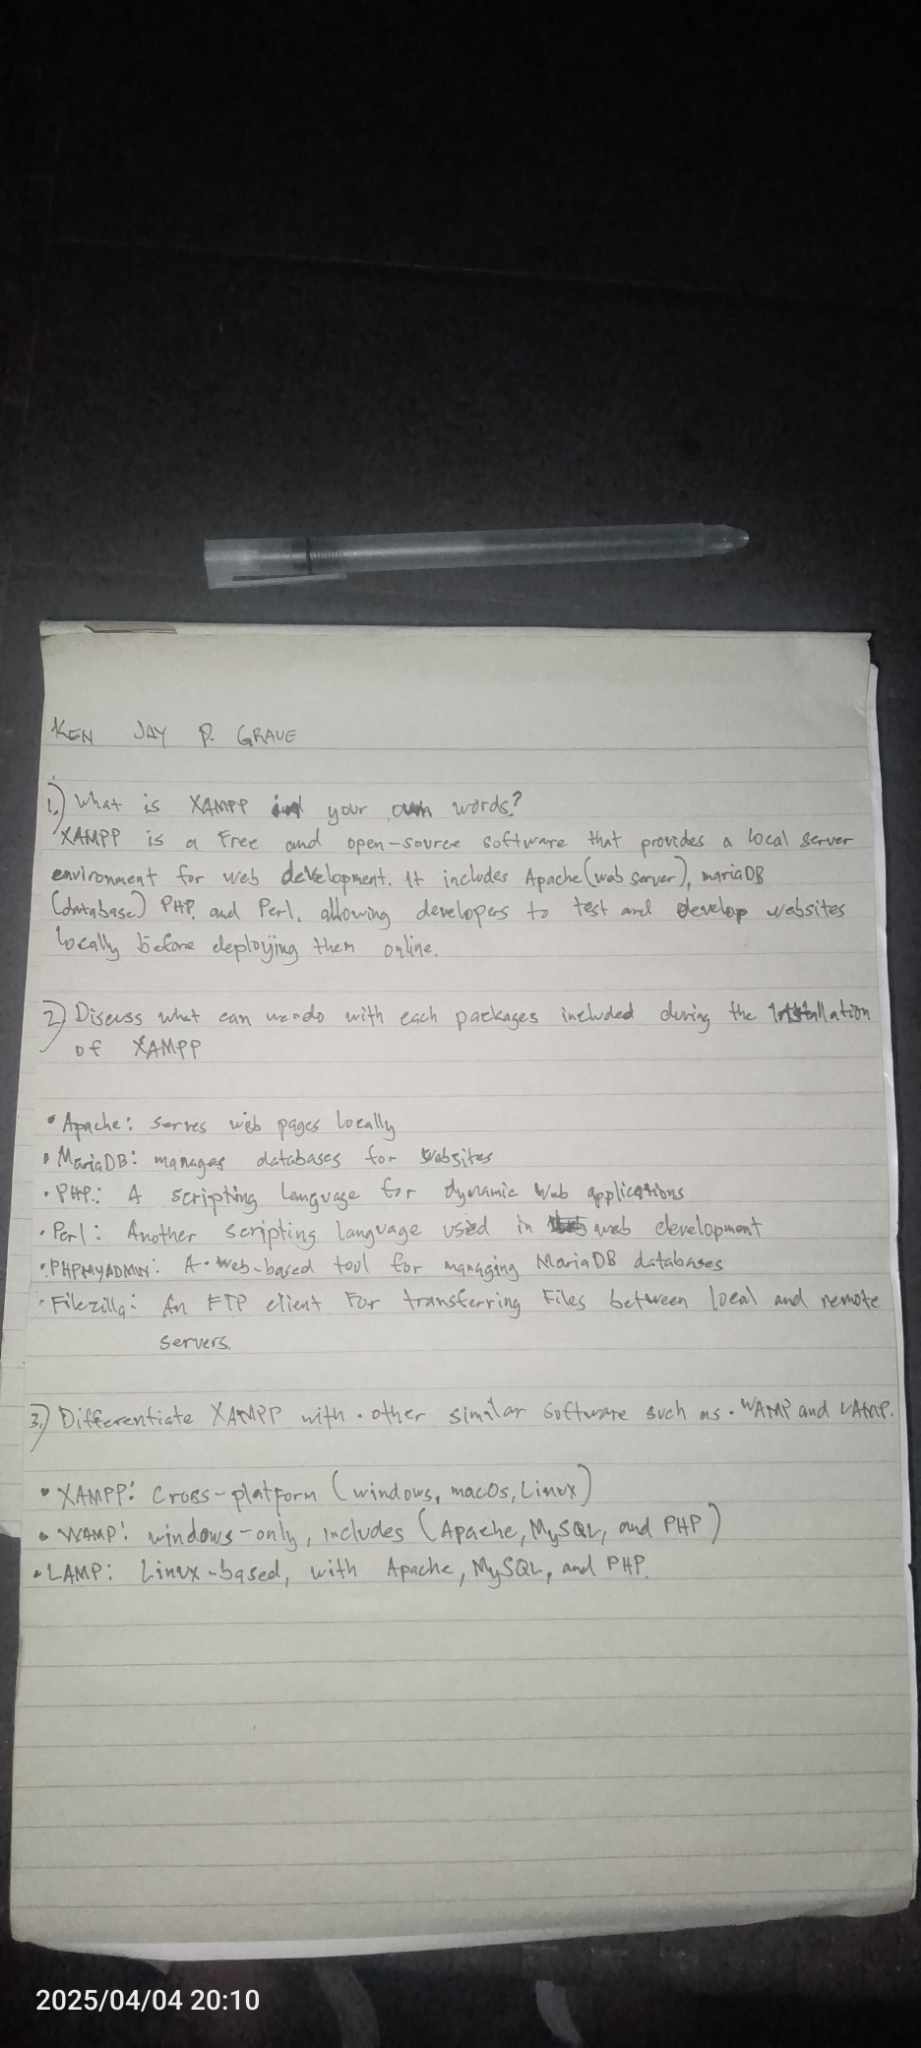 KEN JAY P. GRAVE
1.) What is XAMPP in your own words?
XAMPP is a Free and open-source software that provides a local server
environment for web development. It includes Apache (web server), mariaDB
(database) PHP, and Perl, allowing developers to test and develop websites
locally before deploying them online.
2) Discuss what can we do with each packages included during the Installation
of XAMPP
• Apache: serves web pages locally
• MariaDB: manages databases for websites
• PHP: A scripting language for dynamic web applications
• Perl: Another scripting language used in web development
• PHPMYADMIN: A web-based tool for managing MariaDB databases
• Filezilla: An FTP client For transferring Files between local and remote
servers.
3.) Differentiate XAMPP with other similar software such as WAMP and LAMP.
• XAMPP: Cross-platform (windows, macOs, Linux)
• WAMP: windows-only, includes (Apache, MySQL, and PHP)
• LAMP: Linux-based, with Apache, MySQL, and PHP.
2025/04/04 20:10